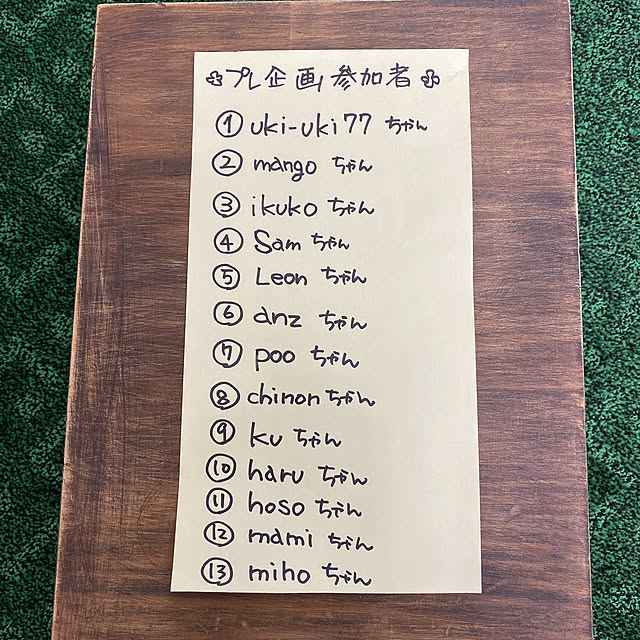 プレ企画参加者
① uki-uki77 ちゃん
② mango ちゃん
③ ikuko ちゃん
④ Sam ちゃん
⑤ Leon ちゃん
⑥ anz ちゃん
⑦ poo ちゃん
⑧ chinon ちゃん
⑨ ku ちゃん
⑩ haru ちゃん
⑪ hoso ちゃん
⑫ mami ちゃん
⑬ miho ちゃん